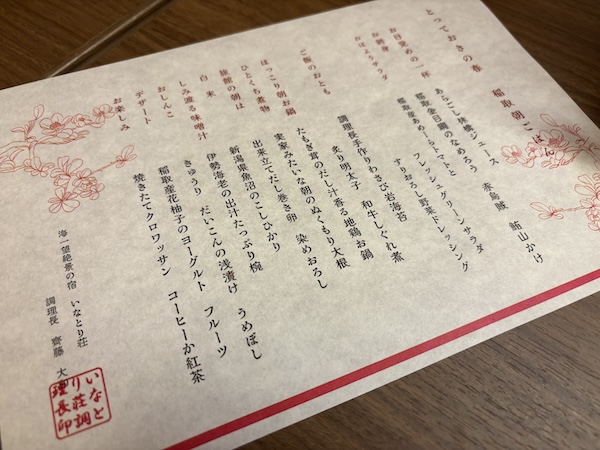 とっておきの春 稲取朝ごはん
お目覚めの一杯 あらごし林檎ジュース
お刺身 稲取金目鯛のなめろう 赤烏賊 鮪山かけ
おはようサラダ 稲取産あめーらトマトと フレッシュグリーンサラダ
すりおろし野菜ドレッシング
ご飯のおとも 調理長手作りわさび岩海苔
炙り明太子 和牛しぐれ煮
ほっこり朝お鍋 たもぎ茸のだし汁香る地鶏お鍋
ひとくち煮物 実家みたいな朝のぬくもり大根
旅館の朝は 出来立てだし巻き卵 染めおろし
白米 新潟県魚沼のこしひかり
しみ渡る味噌汁 伊勢海老の出汁たっぷり椀
おしんこ きゅうり だいこんの浅漬け うめぼし
デザート 稲取産花柚子のヨーグルト フルーツ
お楽しみ 焼きたてクロワッサン コーヒーか紅茶
海一望絶景の宿 いなとり荘
調理長 齊藤 大
いなと
り荘調
理長印